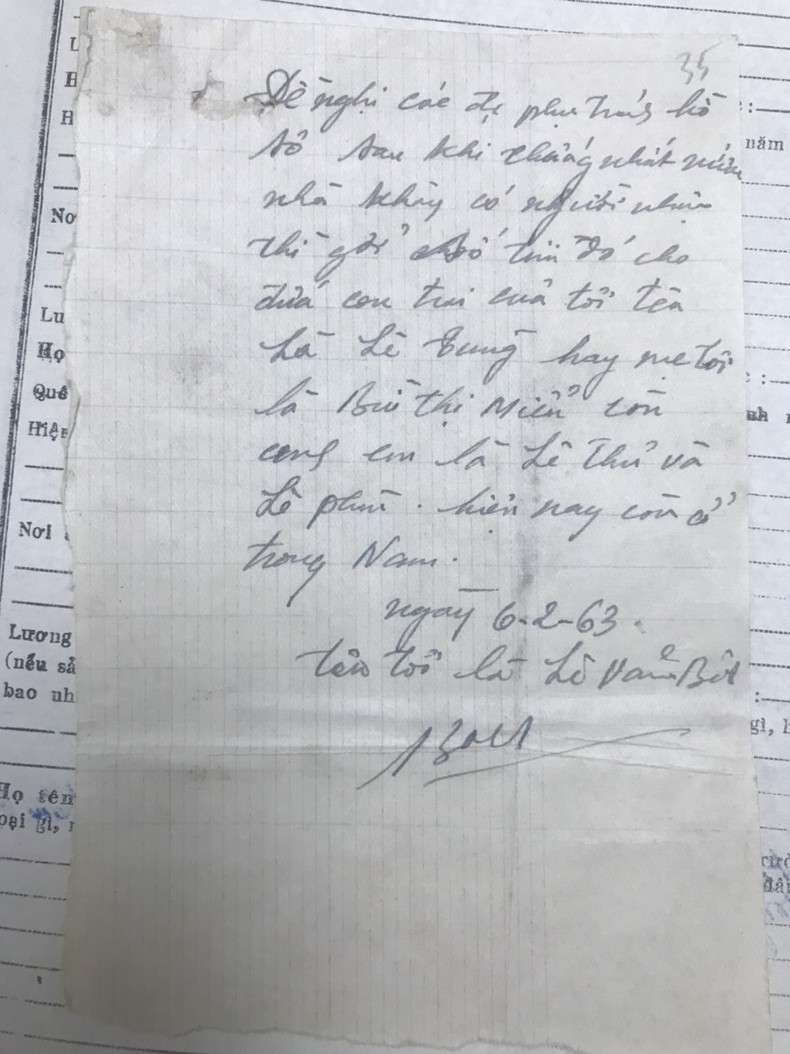 35
Đề nghị các đ/c phụ trách hồ
sơ sau khi thống nhất nước
nhà không có người nhận
thì gởi số tiền đó cho
đứa con trai của tôi tên
là Lê Trung hay mẹ tôi
là Bùi thị Miển còn
em là Lê Thử và
Lê phun. hiện nay còn ở
trong Nam.
ngày 6-2-63.
tên tôi là Lê Văn Bốt
năm
Nơ
Lu
Họ
Quê
Hiện
Nơi
Lương
(nếu
bao nh
Họ tên
oại gì,
gì,